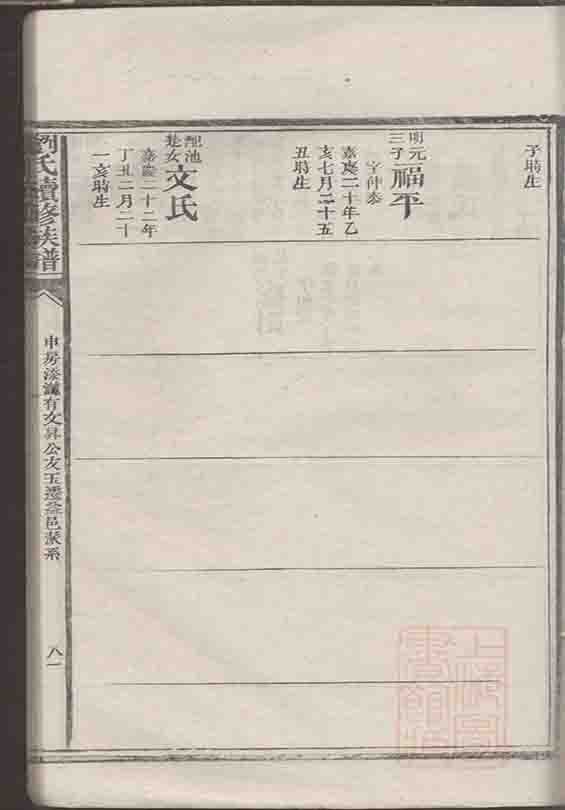 子時生
明元
三子
福平
字仲泰
嘉慶二十年乙
亥七月二十五
丑時生
配池
楚女
文氏
嘉慶二十二年
丁丑二月二十
一亥時生
劉氏續修族譜
申房漤灘有文昇公友玉遷益邑派系
八一
上海圖書館藏